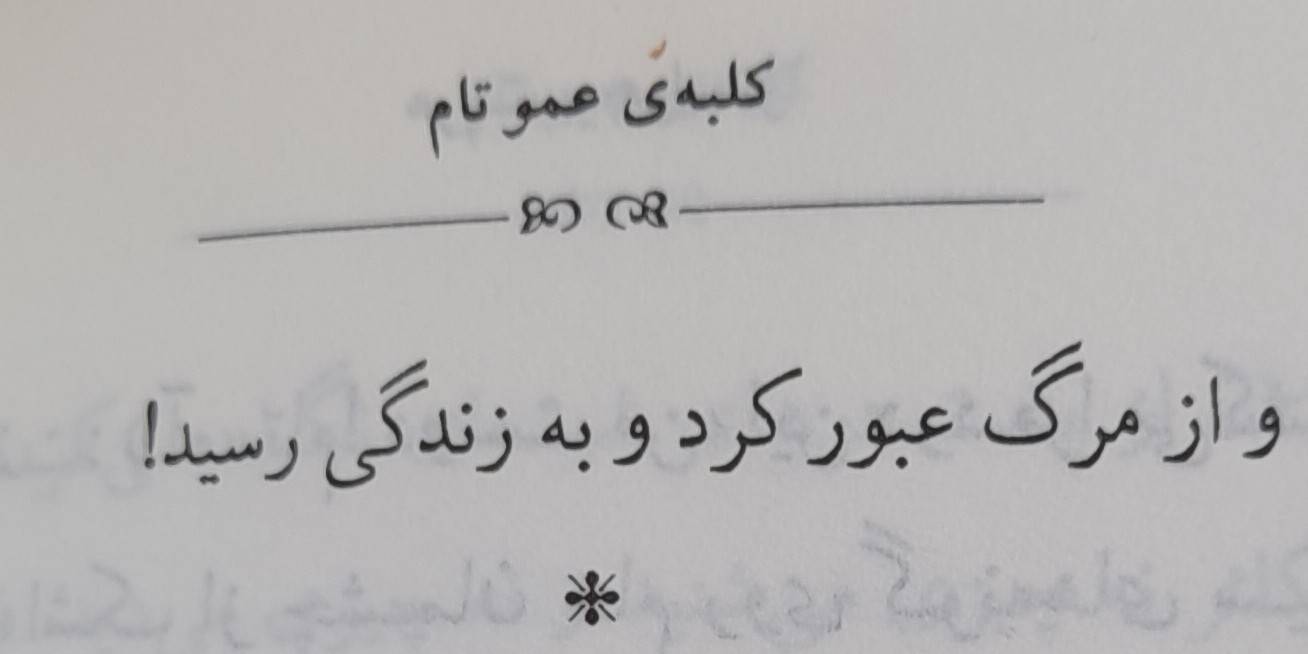 کلبه‌ی عمو تام
و از مرگ عبور کرد و به زندگی رسید!